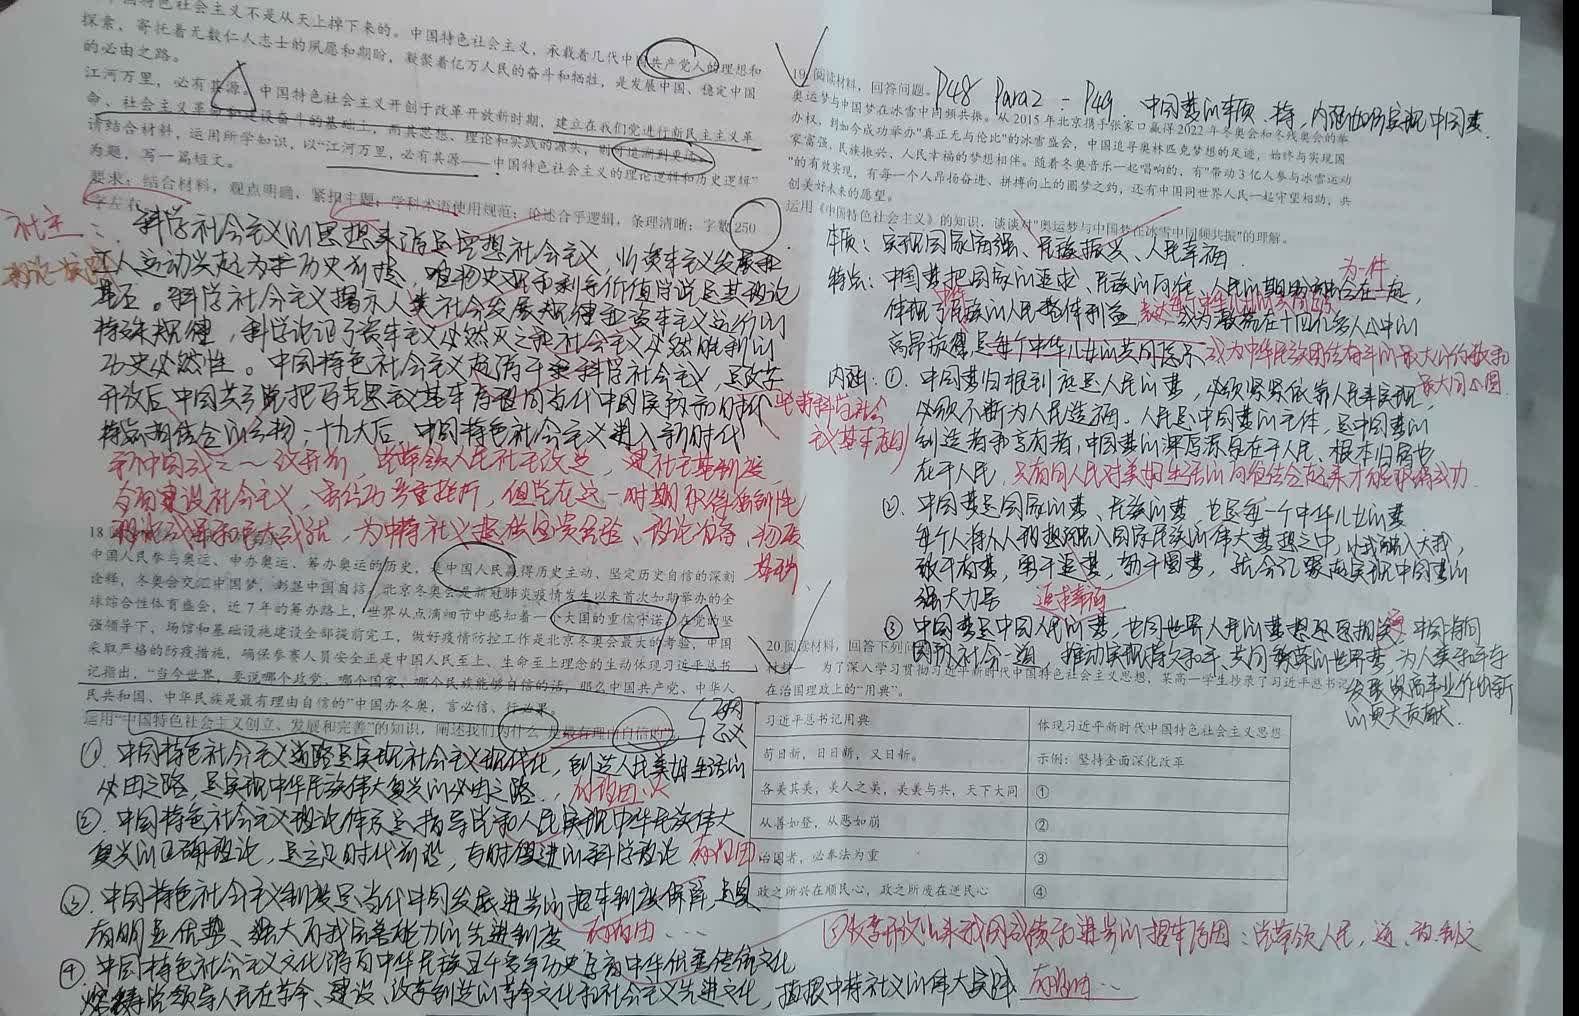 中国特色社会主义不是从天上掉下来的。中国特色社会主义，承载着几代中国共产党人的理想和
探索，寄托着无数仁人志士的夙愿和期盼，凝聚着亿万人民的奋斗和牺牲，是发展中国、稳定中国
的必由之路。
江河万里，必有其源。中国特色社会主义开创于改革开放新时期，建立在我们党进行新民主主义革
命、社会主义革命和建设奋斗的基础上，而其思想、理论和实践的源头，则可追溯到更远。
请结合材料，运用所学知识，以“江河万里，必有其源——中国特色社会主义的理论逻辑和历史逻辑”
为题，写一篇短文。
要求：结合材料，观点明确，紧扣主题；学科术语使用规范；论述合乎逻辑，条理清晰；字数250
字左右。
社主：
科学社会主义的思想来源是空想社会主义，以资本主义发展和
工人运动兴起为本历史前提，唯物史观和剩余价值学说是其理论
基石。科学社会主义揭示人类社会发展规律和资本主义运行的
特殊规律，科学论证了资本主义必然灭亡和社会主义必然胜利的
历史必然性。中国特色社会主义起源于科学社会主义，是改革
开放后中国共产党把马克思主义基本原理同当代中国实际和时代
特征相结合的产物，十九大后，中国特色社会主义进入新时代
坚持科学社会
主义基本原则
新中国成立～改开前，党带领人民社主改造，建社主基制度，
全面建设社会主义，虽经历严重挫折，但党在这一时期取得独创性
理论成果和巨大成就，为中特社主提供宝贵经验、理论准备、物质
基础
18
中国人民参与奥运、申办奥运、筹办奥运的历史，是中国人民赢得历史主动、坚定历史自信的深刻
诠释，冬奥会交汇中国梦，彰显中国自信，北京冬奥会是新冠肺炎疫情发生以来首次如期举办的全
球综合性体育盛会，近7年的筹办路上，世界从点滴细节中感知着一个大国的重信守诺，在党的坚
强领导下，场馆和基础设施建设全部提前完工，做好疫情防控工作是北京冬奥会最大的考验，中国
采取严格的防疫措施，确保参赛人员安全正是中国人民至上、生命至上理念的生动体现习近平总书
记指出，“当今世界，要说哪个政党、哪个国家、哪个民族能够自信的话，那么中国共产党、中华人
民共和国、中华民族是最有理由自信的”中国办冬奥，言必信、行必果。
运用“中国特色社会主义创立、发展和完善”的知识，阐述我们为什么“是最有理由自信的”。
① 中国特色社会主义道路是实现社会主义现代化，创造人民美好生活的
必由之路，是实现中华民族伟大复兴的必由之路。，有理由…
② 中国特色社会主义理论体系是指导党和人民实现中华民族伟大
复兴的正确理论，是立足时代前沿，与时俱进的科学理论 有理由
③ 中国特色社会主义制度是当代中国发展进步的根本制度保障，是具
有明显优势、强大自我完善能力的先进制度 有理由…
④ 中国特色社会主义文化源自中华民族五千多年历史孕育中华优秀传统文化
熔铸党领导人民在革命、建设、改革创造的革命文化和社会主义先进文化，植根中特社义的伟大实践 有理由…
19 阅读材料，回答问题。P48 Para2 - P49. 中国梦的本质、特、内涵 如何实现中国梦
奥运梦与中国梦在冰雪中同频共振。从2015年北京携手张家口赢得2022年冬奥会和冬残奥会的举
办权，到如今成功举办“真正无与伦比”的冰雪盛会，中国追寻奥林匹克梦想的足迹，始终与实现国
家富强、民族振兴、人民幸福的梦想相伴。随着冬奥音乐一起唱响的，有“带动3亿人参与冰雪运动
”的有效实现，有每一个人昂扬奋进、拼搏向上的圆梦之约，还有中国同世界人民一起守望相助，共
创美好未来的愿望。
运用《中国特色社会主义》的知识，谈谈对“奥运梦与中国梦在冰雪中同频共振”的理解。
本质：实现国家富强、民族振兴、人民幸福
特点：中国梦把国家的追求、民族的向往、人民的期盼融合在一起，
为一体
体现了中华民族和人民整体利益，表达每个中华儿女的共同愿景，成为激荡在十四亿多人心中的
高昂旋律是每个中华儿女的共同愿景 成为中华民族团结奋斗的最大公约数和
最大同心圆
内涵：①．中国梦归根到底是人民的梦，必须紧紧依靠人民来实现，
必须不断为人民造福。人民是中国梦的主体，是中国梦的
创造者和享有者，中国梦的深厚源泉在于人民、根本归宿也
在于人民，只有同人民对美好生活的向往结合起来才能取得成功
②．中国梦是国家的梦、民族的梦 也是每一个中华儿女的梦
每个人将个人理想融入国家民族的伟大梦想之中，小我融入大我，
敢于有梦，勇于追梦，勤于圆梦，就会汇聚起实现中国梦的
强大力量 追求幸福
③ 中国梦是中国人民的梦，也同世界人民的梦想息息相通 中国将同
国际社会一道，推动实现持久和平、共同繁荣的世界梦，为人类和平与
发展崇高事业作出新
的更大贡献．
20.阅读材料，回答下列问
材料一 为了深入学习贯彻习近平新时代中国特色社会主义思想，某高一学生抄录了习近平总书记
在治国理政上的“用典”。
习近平总书记用典 体现习近平新时代中国特色社会主义思想
苟日新，日日新，又日新。 示例：坚持全面深化改革
各美其美，美人之美，美美与共，天下大同 ①
从善如登，从恶如崩 ②
治国者，必奉法为重 ③
政之所兴在顺民心，政之所废在逆民心 ④
⑤改革开放以来我国成绩和进步的根本原因：党带领人民，道、理、制、文